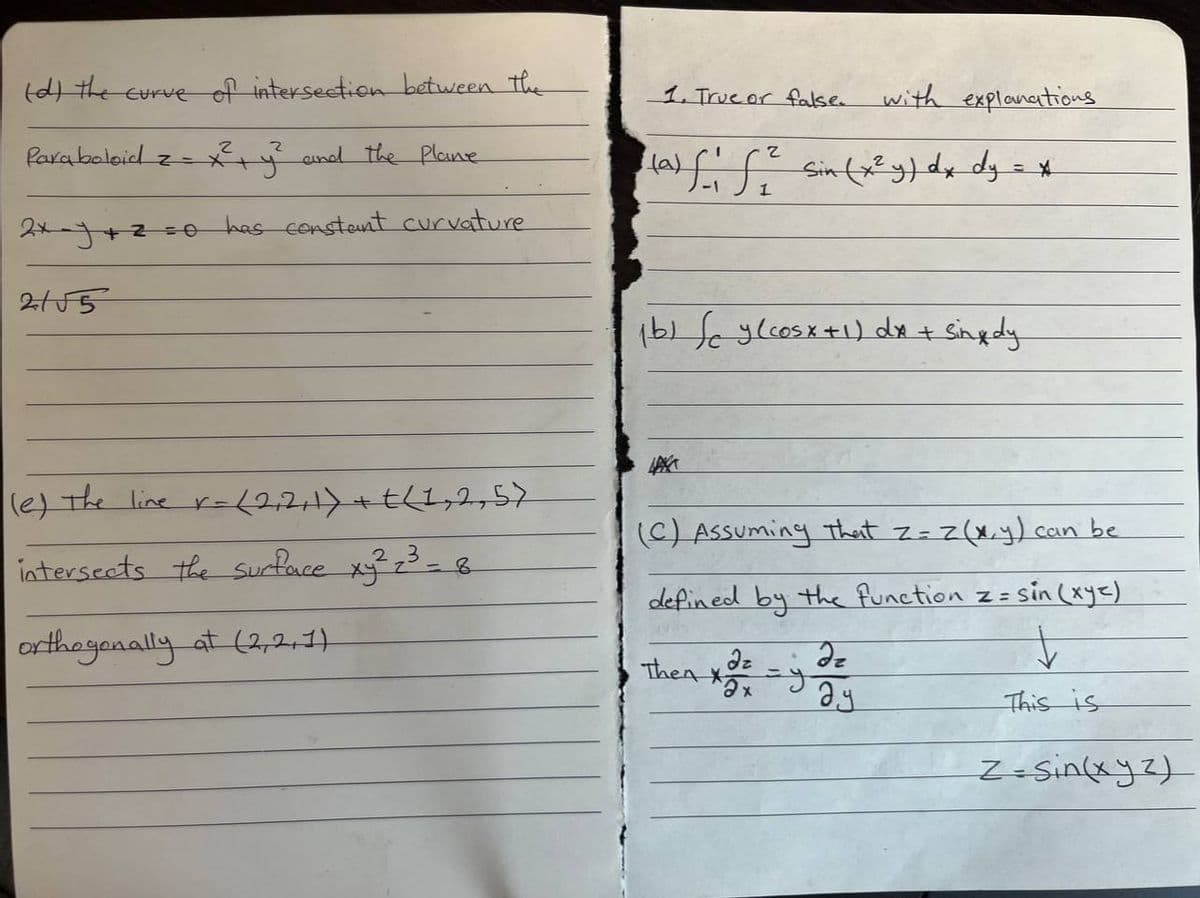 (d) the curve of intersection between the
Paraboloid z = x² + y² and the Plane
2x - y + z = 0 has constant curvature
2/√5
(e) The line r = ⟨2,2,1⟩ + t⟨1,2,5⟩
intersects the surface xy²z³ = 8
orthogonally at (2,2,1)
1. True or false. with explanations
(a) ∫₋₁¹ ∫₁² sin(x²y) dx dy =
(b) ∫c y(cosx+1) dx + sinxdy
(C) Assuming that z = z(x,y) can be
defined by the function z = sin(xyz)
↓
Then x ∂z/∂x = y ∂z/∂y
This is
Z = sin(xyz)